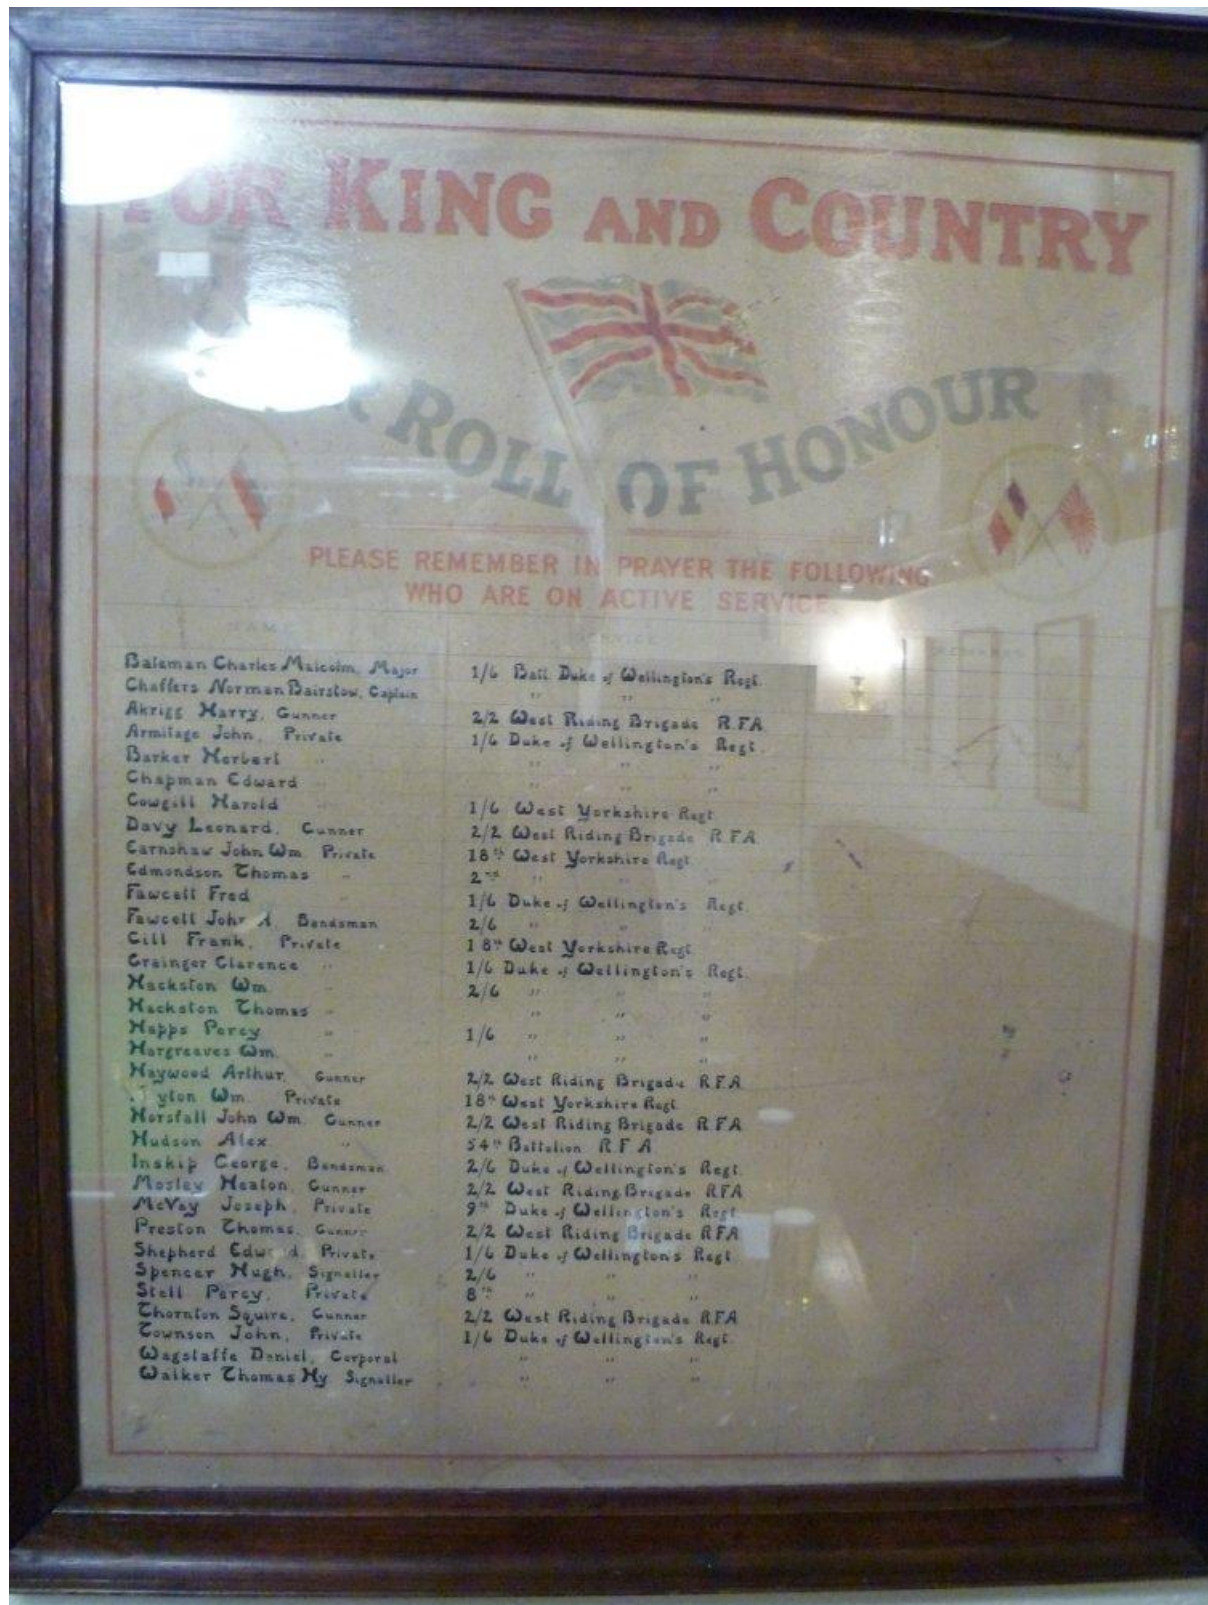 FOR KING AND COUNTRY
ROLL OF HONOUR
PLEASE REMEMBER IN PRAYER THE FOLLOWING
WHO ARE ON ACTIVE SERVICE
NAME SERVICE REMARKS
Bateman Charles Malcolm, Major 1/6 Batt. Duke of Wellington's Regt.
Chaffers Norman Bairstow, Captain " " "
Akrigg Harry, Gunner 2/2 West Riding Brigade R.F.A.
Armitage John, Private 1/6 Duke of Wellington's Regt.
Barker Herbert " " " "
Chapman Edward " " " "
Cowgill Harold " 1/6 West Yorkshire Regt.
Davy Leonard, Gunner 2/2 West Riding Brigade R.F.A.
Earnshaw John Wm. Private 18th West Yorkshire Regt.
Edmondson Thomas " 2nd " " "
Fawcett Fred " 1/6 Duke of Wellington's Regt.
Fawcett John A. Bandsman 2/6 " " "
Gill Frank, Private 18th West Yorkshire Regt.
Grainger Clarence " 1/6 Duke of Wellington's Regt.
Hackston Wm. " 2/6 " " "
Hackston Thomas " " " "
Happs Percy " 1/6 " " "
Hargreaves Wm. " " " "
Haywood Arthur, Gunner 2/2 West Riding Brigade R.F.A.
Wm. Private 18th West Yorkshire Regt.
Horsfall John Wm. Gunner 2/2 West Riding Brigade R.F.A.
Hudson Alex. " 54th Battalion R.F.A.
Inskip George, Bandsman 2/6 Duke of Wellington's Regt.
Mosley Heaton, Gunner 2/2 West Riding Brigade R.F.A.
McVay Joseph, Private 9th Duke of Wellington's Regt.
Preston Thomas, Gunner 2/2 West Riding Brigade R.F.A.
Shepherd Edward, Private 1/6 Duke of Wellington's Regt.
Spencer Hugh, Signaller 2/6 " " "
Stell Percy, Private 8th " " "
Thornton Squire, Gunner 2/2 West Riding Brigade R.F.A.
Townson John, Private 1/6 Duke of Wellington's Regt.
Wagstaffe Daniel, Corporal " " "
Walker Thomas Hy. Signaller " " "